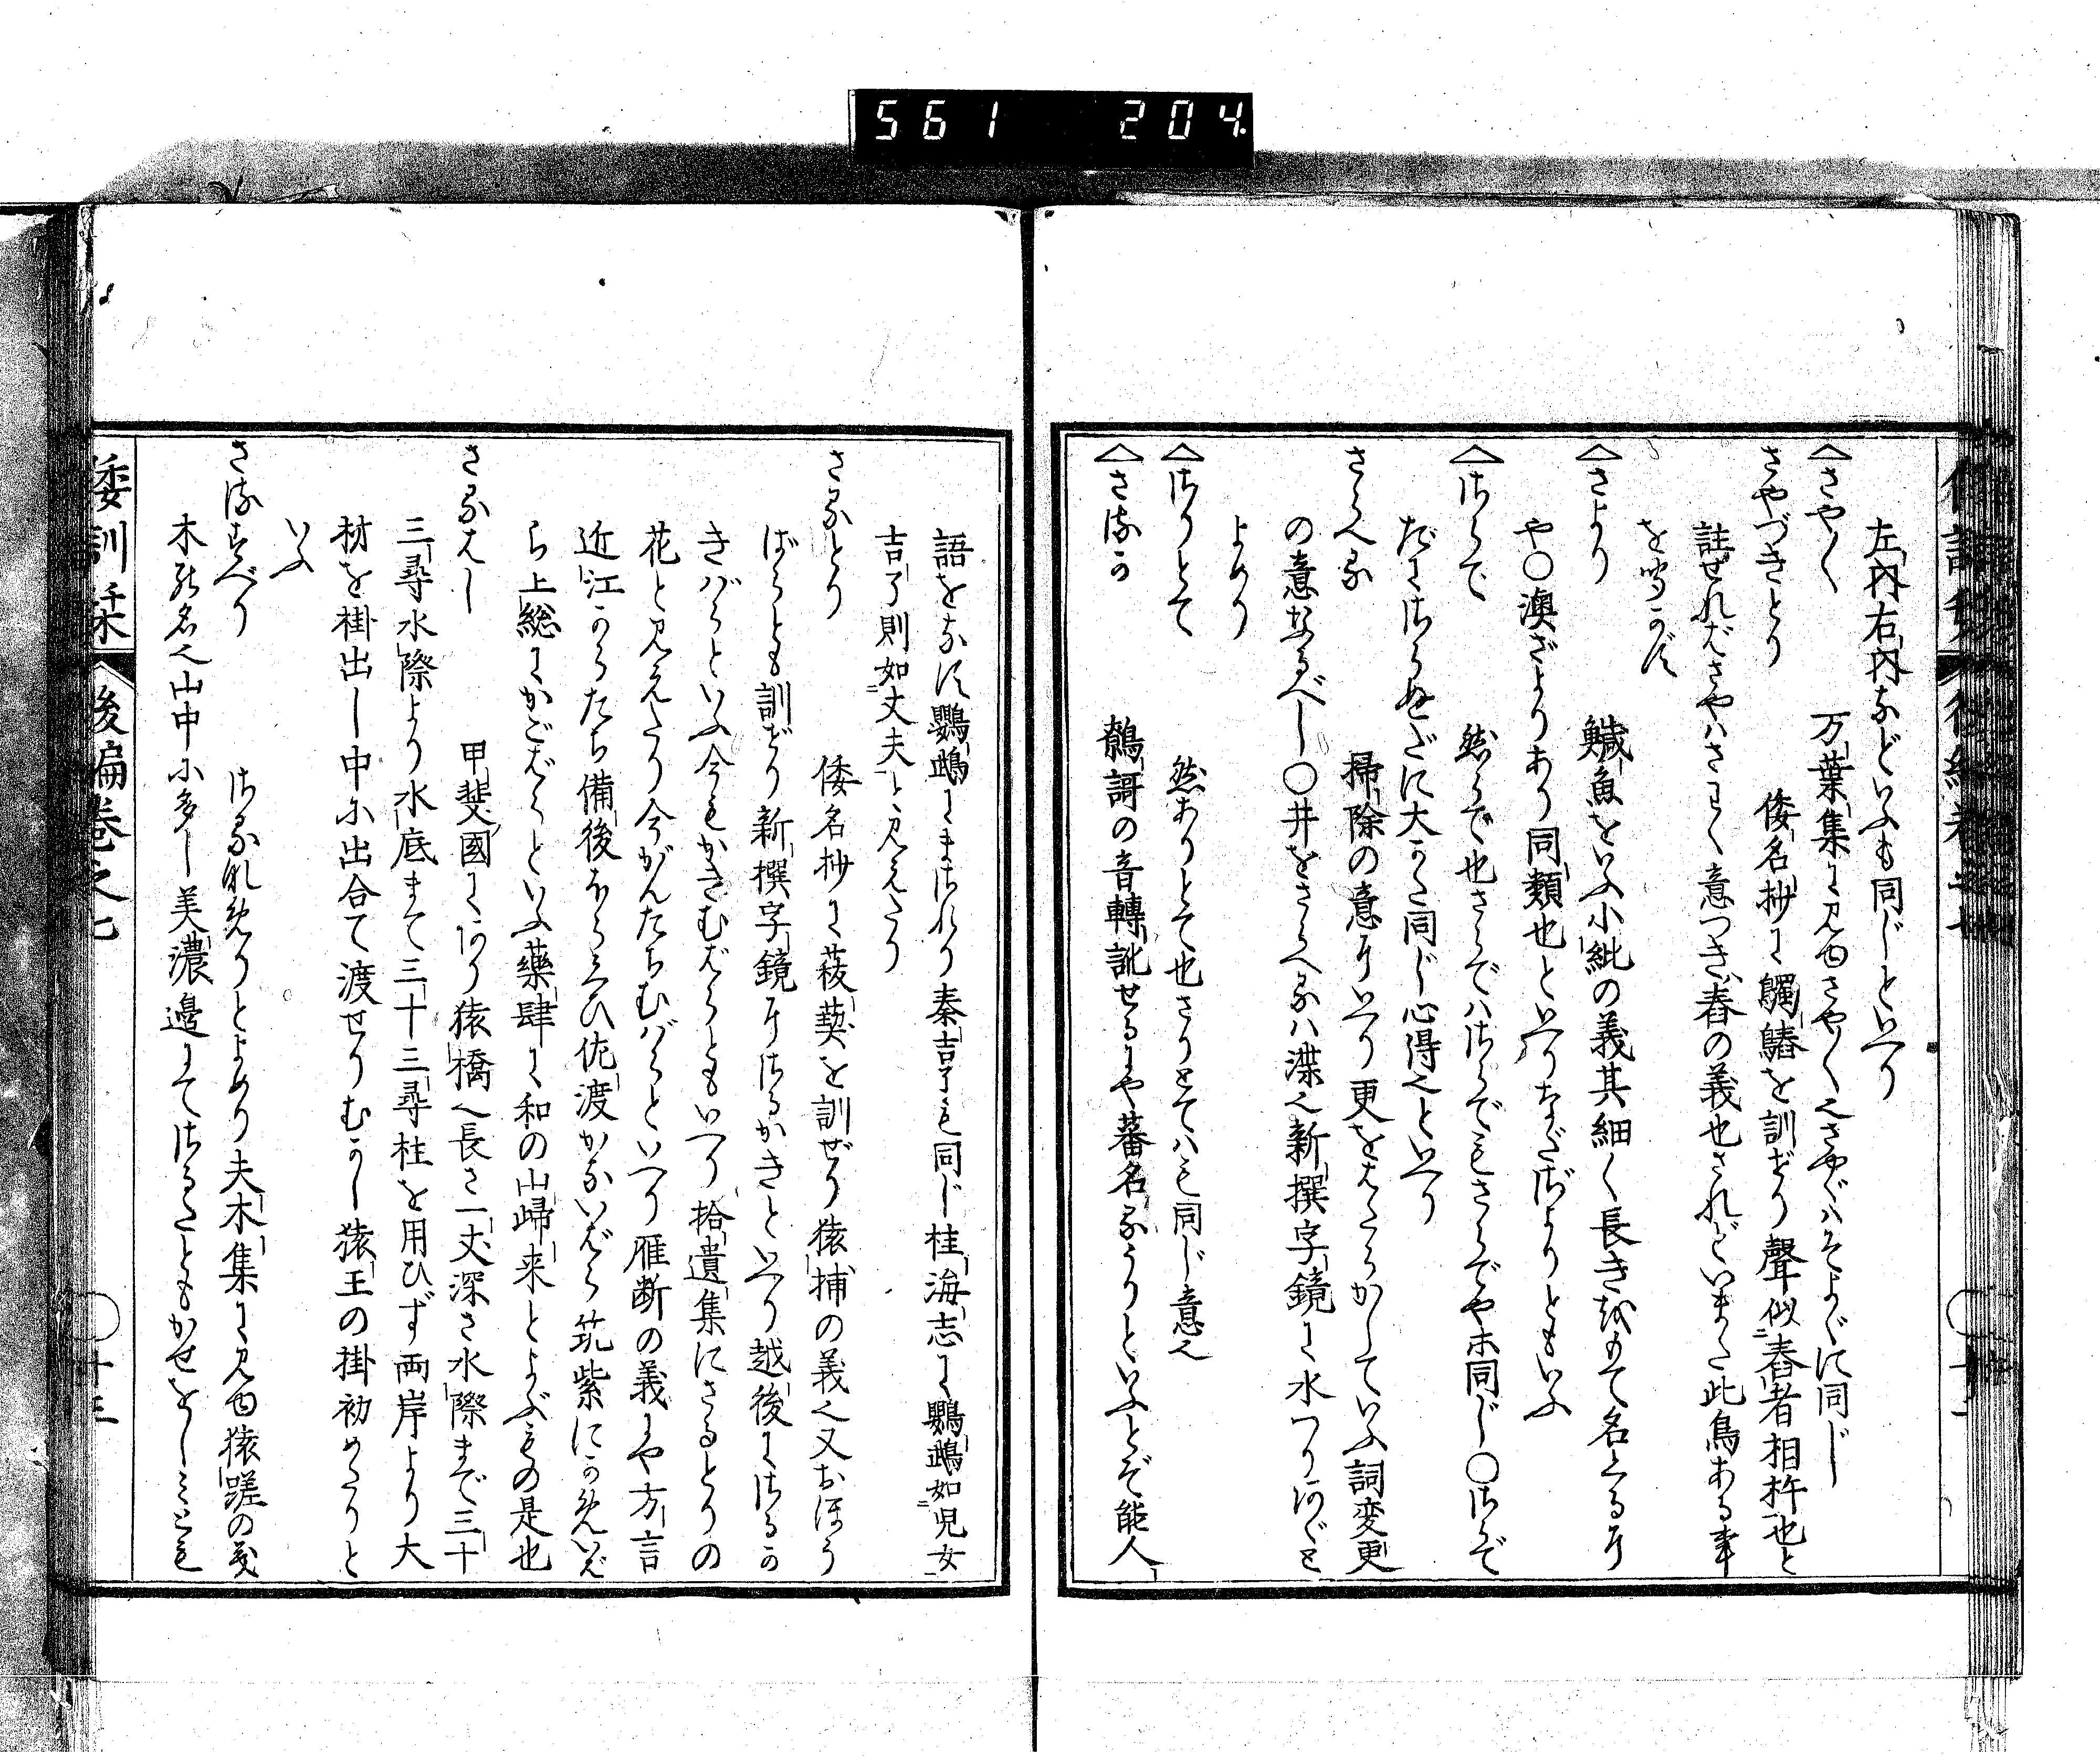 561 204
左内右内などいふも同じといへり
さやく 万葉集に見ゆさやく也さやぐハそよぐに同じ
さやづきどり 倭名抄に䲪䳰を訓ぜり聲似舂者相杵也と
註せれバさやハさわく意つき舂の義也されどいまだ此鳥ある事
を聞かず
さより 鱵魚をいふ小䱥の義其細く長きをもて名くるに
や〇澳ざよりあり同類也といへりながざよりともいふ
さらで 然らで也さらでハさらでもさらでや亦同じ〇さらぬ
だにさらぬだに大かた同じ心得也といへり
さらへる 掃除の意にいへり更をはたらかしていふ詞変更
の意なるべし〇井をさらへるハ渫也新撰字鏡に水つりあぐと
よめり
さりとて 然ありとて也さりとてハも同じ意也
さるか 鷸䳗の音轉訛せるにや蕃名るうりといふとぞ能人
語をなす鸚鵡にまされり秦吉了も同じ桂海志に鸚鵡如児女
吉了則如丈夫と見えたり
さるとり 倭名抄に菝葜を訓ぜり猿捕の義也又おほう
ばらとも訓ぜり新撰字鏡にさるかきといへり越後にさるか
きバらといふ今もかきむばらともいへり拾遺集にさるとりの
花と見えたり今がんたちむバらといへり雁断の義にや方言
近江からたち備後ほらくひ佐渡かないばら筑紫にかめいば
ら上総にかごばらといふ藥肆に和の山歸来とよぶもの是也
さるはし 甲斐國にあり猿橋也長さ一丈深さ水際まで三十
三尋水際より水底まて三十三尋柱を用ひず両岸より大
材を掛出し中に出合て渡せりむかし猿王の掛初めたりと
いふ
さるすべり さるなめりとよめり夫木集に見ゆ猿蹉の義
木の名也山中に多し美濃邊にてさるたともかせをしミとも
倭訓栞 後編巻之七 〇十三